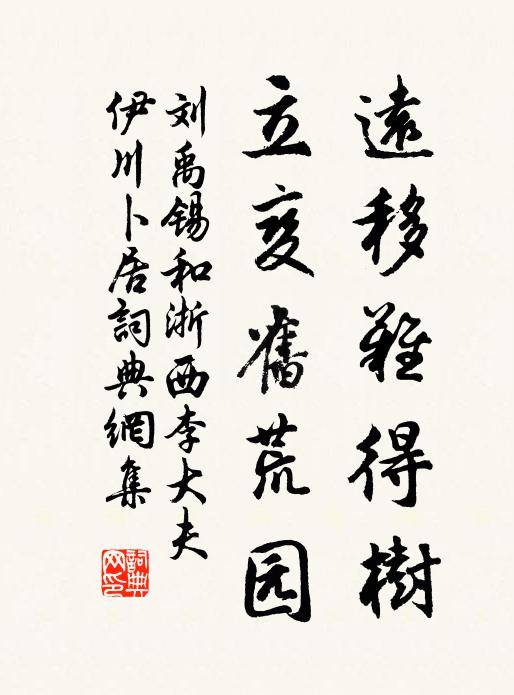 遠移難得樹
立变舊荒园
刘禹錫和浙西李大夫
伊川卜居詞典網集
詞典网印